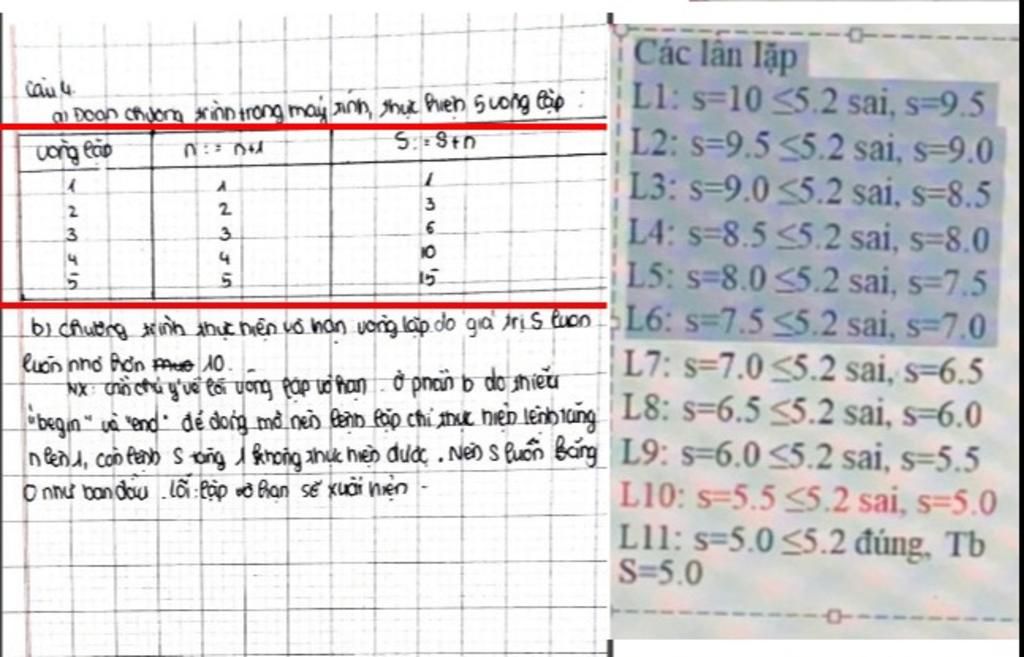 Câu 4.
a) Đoạn chương trình trong máy tính, thực hiện 5 vòng lặp :
vòng lặp n := n+1 S := S+n
1 1 1
2 2 3
3 3 6
4 4 10
5 5 15
b) chương trình thực hiện vô hạn vòng lặp do giá trị S luôn
luôn nhỏ hơn 10.
NX: cần chú ý về lỗi vòng lặp vô hạn. ở phần b do thiếu
"begin" và "end" để đóng mở nên lệnh lặp chỉ thực hiện lệnh tăng
n lên 1, còn lệnh S tăng 1 không thực hiện được. Nên S luôn bằng
0 như ban đầu. lỗi lặp vô hạn sẽ xuất hiện -
Các lần lặp
L1: s=10 ≤5.2 sai, s=9.5
L2: s=9.5 ≤5.2 sai, s=9.0
L3: s=9.0 ≤5.2 sai, s=8.5
L4: s=8.5 ≤5.2 sai, s=8.0
L5: s=8.0 ≤5.2 sai, s=7.5
L6: s=7.5 ≤5.2 sai, s=7.0
L7: s=7.0 ≤5.2 sai, s=6.5
L8: s=6.5 ≤5.2 sai, s=6.0
L9: s=6.0 ≤5.2 sai, s=5.5
L10: s=5.5 ≤5.2 sai, s=5.0
L11: s=5.0 ≤5.2 đúng, Tb
S=5.0